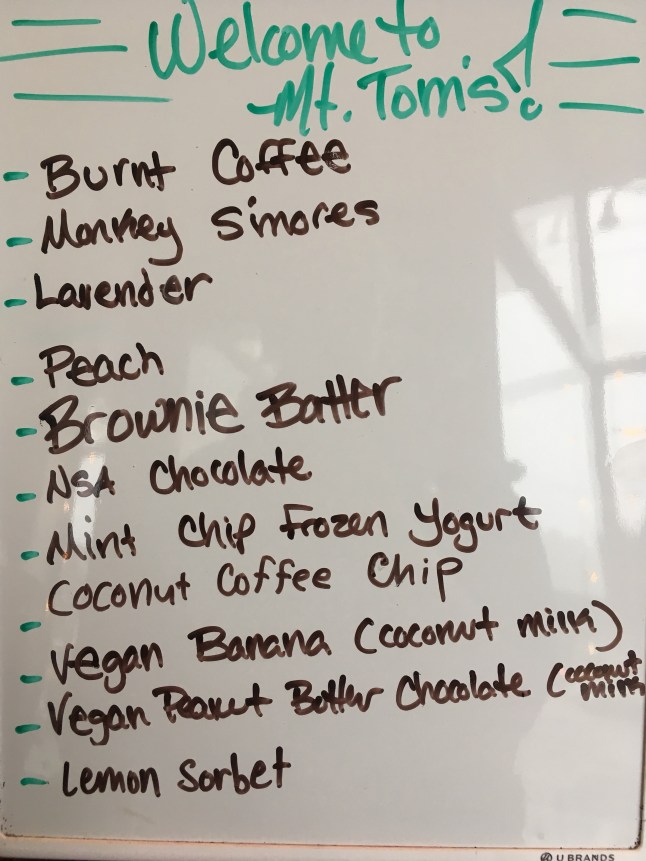 Welcome to
Mt. Tom's!
- Burnt Coffee
- Monkey S'mores
- Lavender
- Peach
- Brownie Batter
- NSA Chocolate
- Mint Chip Frozen Yogurt
- Coconut Coffee Chip
- Vegan Banana (coconut milk)
- Vegan Peanut Butter Chocolate (coconut
milk
- Lemon Sorbet
U BRANDS